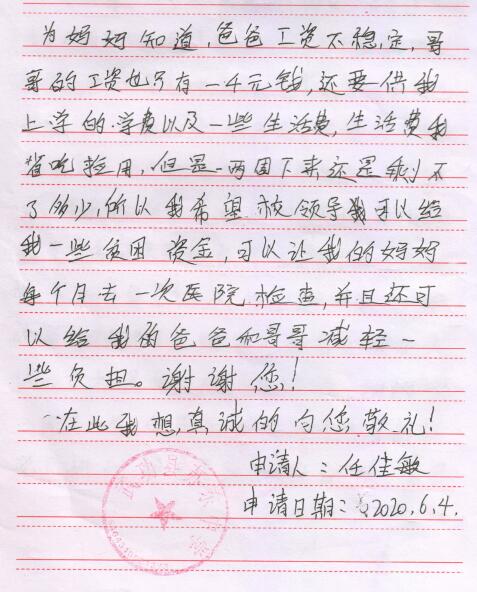 为妈妈知道,爸爸工资不稳,定,哥
哥的工资也只有一4元钱,还要供我
上学的学费以及一些生活费,生活费我
省吃捡用,但是一两周下来还是剩不
了多少,所以我希望校领导我可以给
我一些贫困资金,可以让我的妈妈
每个月去一次医院检查,并且还可
以给我的爸爸和哥哥减轻一
些负担。谢谢您!
在此我想真诚的向您敬礼!
申请人:任佳敏
申请日期:2020.6.4.